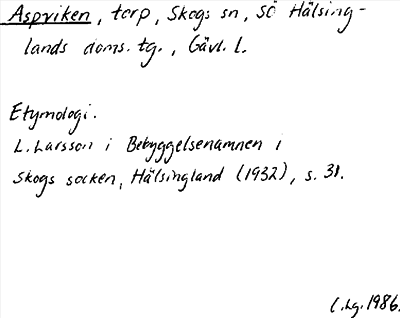 Aspviken, torp, Skogs sn, SÖ Hälsing-
lands doms. tg., Gävl. l.
Etymologi.
L. Larsson i Bebyggelsenamnen i
Skogs socken, Hälsingland (1932), s. 31.
1986.